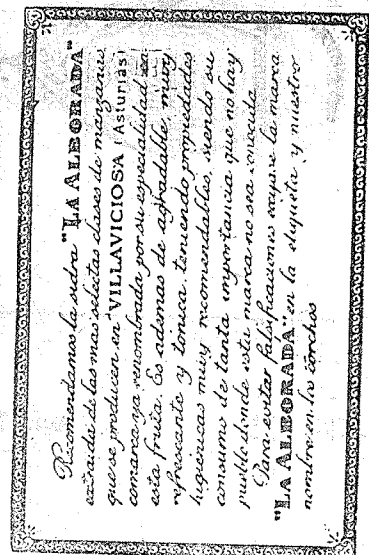 Recomendamos la sidra "LA ALBORADA"
extraida de las mas selectas clases de manzanas
que se producen en VILLAVICIOSA (Asturias)
comarca ya renombrada por su especialidad en
esta fruta. Es ademas de agradable, muy
refrescante y tónica, teniendo propiedades
higienicas muy recomendables, siendo su
consumo de tanta importancia que no hay
pueblo donde esta marca no sea conocida
Para evitar falsificaciones exijase la marca
"LA ALBORADA" en la etiqueta y nuestro
nombre en los corchos